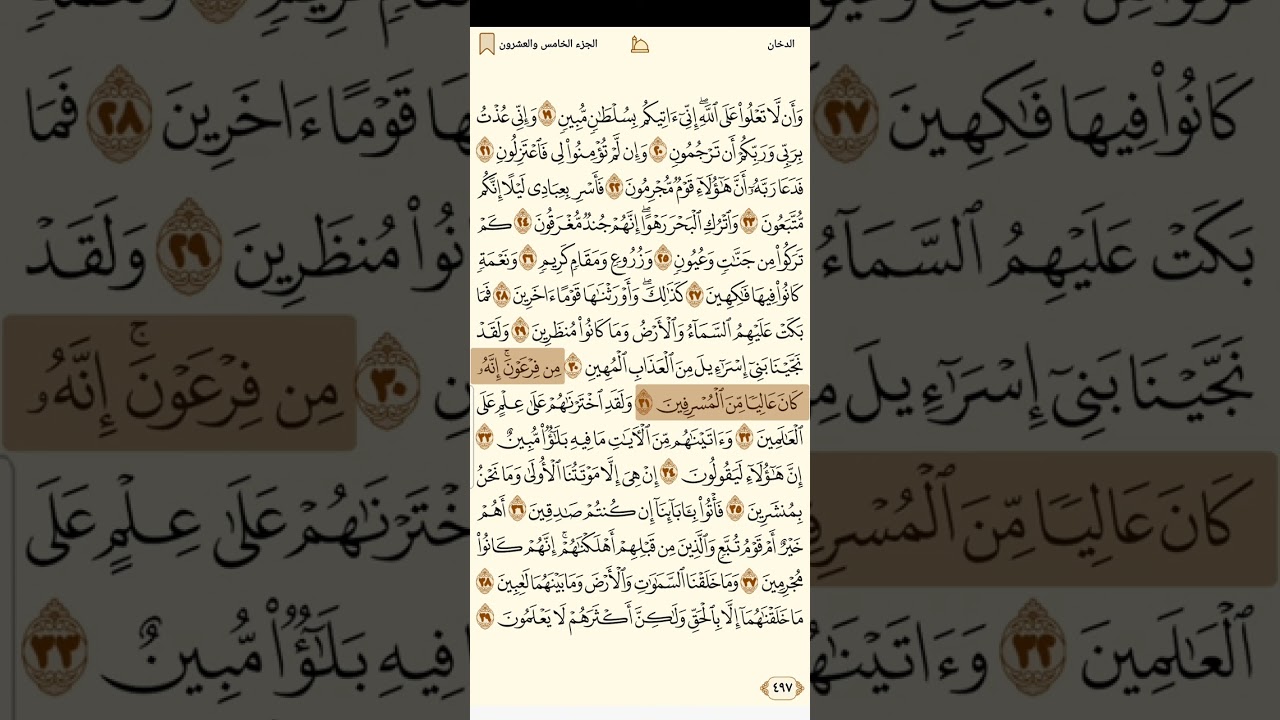 الدخان
الجزء الخامس والعشرون
وَأَن لَّا تَعْلُوا۟ عَلَى ٱللَّهِ ۖ إِنِّىٓ ءَاتِيكُم بِسُلْطَـٰنٍ مُّبِينٍ ١٩ وَإِنِّى عُذْتُ
بِرَبِّى وَرَبِّكُمْ أَن تَرْجُمُونِ ٢٠ وَإِن لَّمْ تُؤْمِنُوا۟ لِى فَٱعْتَزِلُونِ ٢١
فَدَعَا رَبَّهُۥٓ أَنَّ هَـٰٓؤُلَآءِ قَوْمٌ مُّجْرِمُونَ ٢٢ فَأَسْرِ بِعِبَادِى لَيْلًا إِنَّكُم
مُّتَّبَعُونَ ٢٣ وَٱتْرُكِ ٱلْبَحْرَ رَهْوًا ۖ إِنَّهُمْ جُندٌ مُّغْرَقُونَ ٢٤ كَمْ
تَرَكُوا۟ مِن جَنَّـٰتٍ وَعُيُونٍ ٢٥ وَزُرُوعٍ وَمَقَامٍ كَرِيمٍ ٢٦ وَنَعْمَةٍ
كَانُوا۟ فِيهَا فَـٰكِهِينَ ٢٧ كَذَٰلِكَ ۖ وَأَوْرَثْنَـٰهَا قَوْمًا ءَاخَرِينَ ٢٨ فَمَا
بَكَتْ عَلَيْهِمُ ٱلسَّمَآءُ وَٱلْأَرْضُ وَمَا كَانُوا۟ مُنظَرِينَ ٢٩ وَلَقَدْ
نَجَّيْنَا بَنِىٓ إِسْرَٰٓءِيلَ مِنَ ٱلْعَذَابِ ٱلْمُهِينِ ٣٠ مِن فِرْعَوْنَ ۚ إِنَّهُۥ
كَانَ عَالِيًا مِّنَ ٱلْمُسْرِفِينَ ٣١ وَلَقَدِ ٱخْتَرْنَـٰهُمْ عَلَىٰ عِلْمٍ عَلَى
ٱلْعَـٰلَمِينَ ٣٢ وَءَاتَيْنَـٰهُم مِّنَ ٱلْـَٔايَـٰتِ مَا فِيهِ بَلَـٰٓؤٌا۟ مُّبِينٌ ٣٣
إِنَّ هَـٰٓؤُلَآءِ لَيَقُولُونَ ٣٤ إِنْ هِىَ إِلَّا مَوْتَتُنَا ٱلْأُولَىٰ وَمَا نَحْنُ
بِمُنشَرِينَ ٣٥ فَأْتُوا۟ بِـَٔابَآئِنَآ إِن كُنتُمْ صَـٰدِقِينَ ٣٦ أَهُمْ
خَيْرٌ أَمْ قَوْمُ تُبَّعٍ وَٱلَّذِينَ مِن قَبْلِهِمْ ۚ أَهْلَكْنَـٰهُمْ ۖ إِنَّهُمْ كَانُوا۟
مُجْرِمِينَ ٣٧ وَمَا خَلَقْنَا ٱلسَّمَـٰوَٰتِ وَٱلْأَرْضَ وَمَا بَيْنَهُمَا لَـٰعِبِينَ ٣٨
مَا خَلَقْنَـٰهُمَآ إِلَّا بِٱلْحَقِّ وَلَـٰكِنَّ أَكْثَرَهُمْ لَا يَعْلَمُونَ ٣٩
٤٩٧